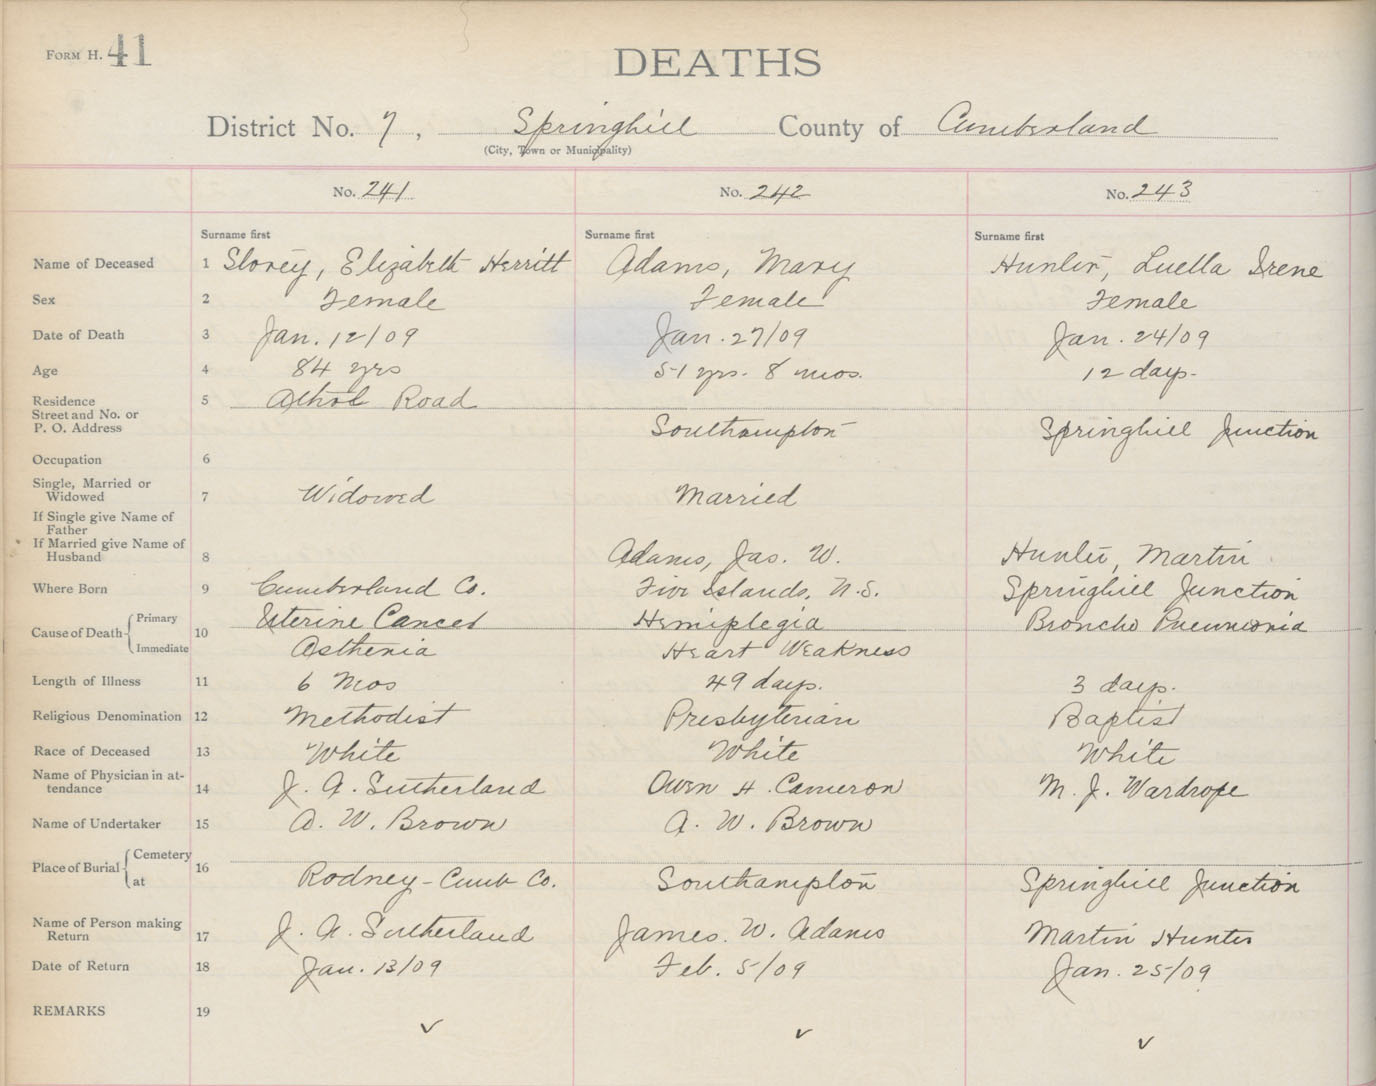 FORM H. 41
DEATHS
District No. 7, Springhill County of Cumberland
(City, Town or Municipality)
No. 241 No. 242 No. 243
Surname first Surname first Surname first
Name of Deceased 1 Storey, Elizabeth Herritt Adams, Mary Hunter, Luella Irene
Sex 2 Female Female Female
Date of Death 3 Jan. 12/09 Jan. 27/09 Jan. 24/09
Age 4 84 yrs 51 yrs. 8 mos. 12 days.
Residence 5 Athol Road
Street and No. or
P. O. Address Southampton Springhill Junction
Occupation 6
Single, Married or
Widowed 7 Widowed Married
If Single give Name of
Father
If Married give Name of
Husband 8 Adams, Jas. W. Hunter, Martin
Where Born 9 Cumberland Co. Five Islands, N.S. Springhill Junction
Cause of Death Primary 10 Uterine Cancer Hemiplegia Broncho Pneumonia
Immediate Asthenia Heart Weakness
Length of Illness 11 6 Mos 49 days. 3 days.
Religious Denomination 12 Methodist Presbyterian Baptist
Race of Deceased 13 White White White
Name of Physician in at-
tendance 14 J. A. Sutherland Owen H. Cameron M. J. Wardrope
Name of Undertaker 15 A. W. Brown A. W. Brown
Place of Burial Cemetery 16
at Rodney - Cumb Co. Southampton Springhill Junction
Name of Person making
Return 17 J. A. Sutherland James. W. Adams Martin Hunter
Date of Return 18 Jan. 13/09 Feb. 5/09 Jan. 25/09
REMARKS 19